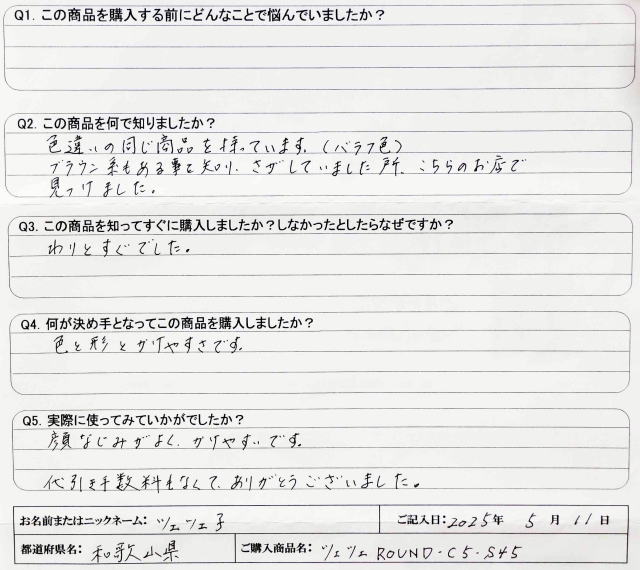 Q1. この商品を購入する前にどんなことで悩んでいましたか？
Q2. この商品を何で知りましたか？
色違いの同じ商品を持っています。(バラフ色)
ブラウン系もある事を知り、さがしていました所、こちらのお店で
見つけました。
Q3. この商品を知ってすぐに購入しましたか？しなかったとしたらなぜですか？
わりとすぐでした。
Q4. 何が決め手となってこの商品を購入しましたか？
色と形とかけやすさです。
Q5. 実際に使ってみていかがでしたか？
顔なじみがよく、かけやすいです。
代引き手数料もなくて、ありがとうございました。
お名前またはニックネーム： ツェツェ子 ご記入日：2025年 5月 11日
都道府県名： 和歌山県 ご購入商品名： ツェツェ ROUND-C5-S45